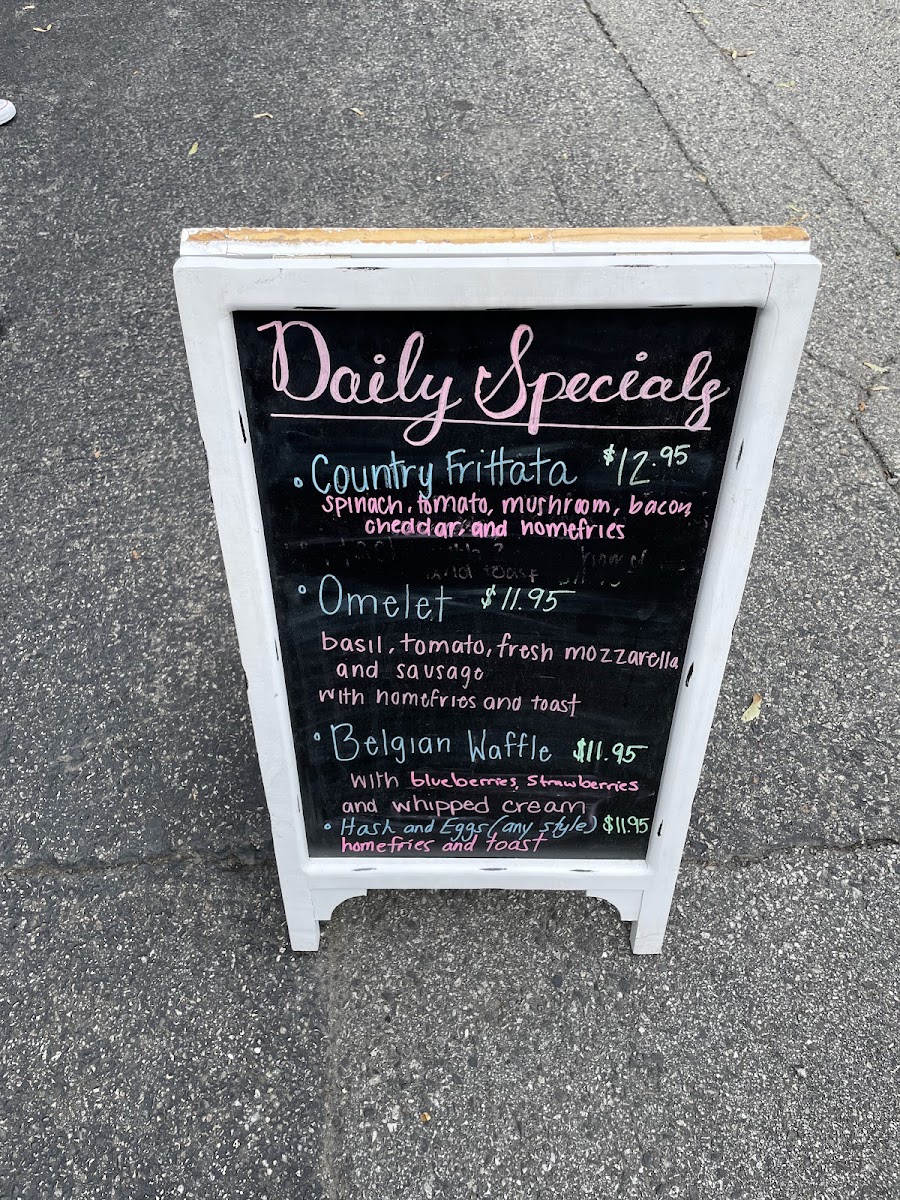 Daily Specials
• Country Frittata $12.95
spinach, tomato, mushroom, bacon
cheddar, and homefries
and toast
• Omelet $11.95
basil, tomato, fresh mozzarella
and sausage
with homefries and toast
• Belgian Waffle $11.95
with blueberries, strawberries
and whipped cream
• Hash and Eggs (any style) $11.95
homefries and toast